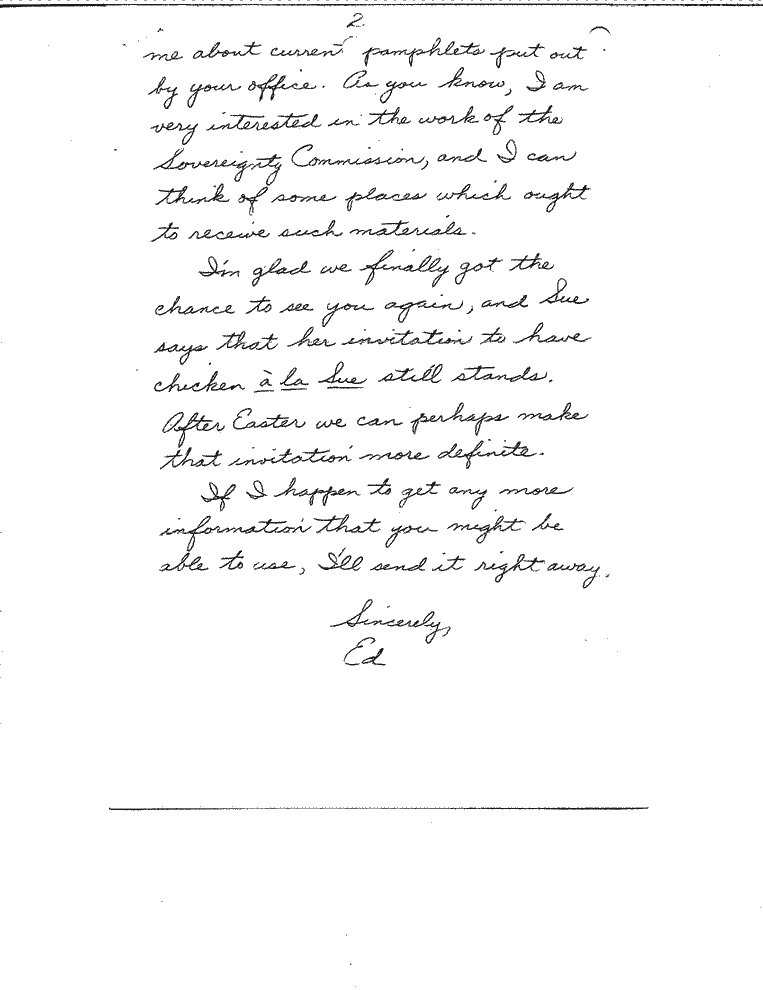 2
me about current pamphlets put out
by your office. As you know, I am
very interested in the work of the
Sovereignty Commission, and I can
think of some places which ought
to receive such materials.
I'm glad we finally got the
chance to see you again, and Sue
says that her invitation to have
chicken à la Sue still stands.
After Easter we can perhaps make
that invitation more definite.
If I happen to get any more
information that you might be
able to use, I'll send it right away.
Sincerely,
Ed